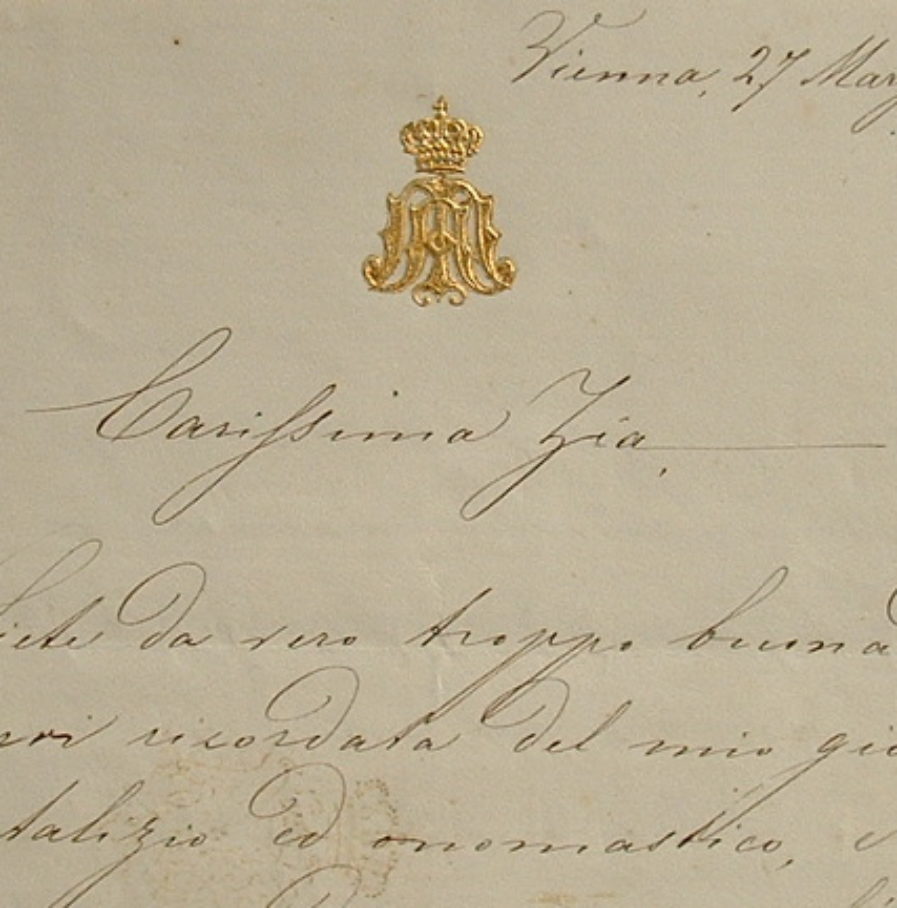 Vienna, 27 Mar
Carissima Zia,
Siete da vero troppo buona
vi ricordata del mio gio
talizio ed onomastico,